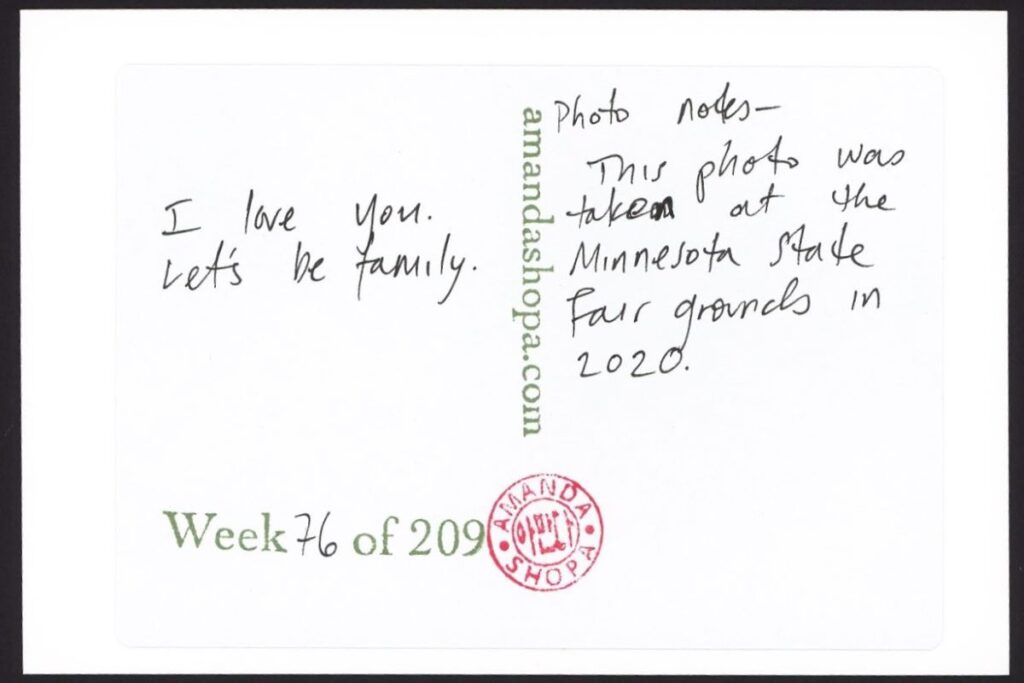 I love you.
Let's be family.
amandashopa.com
Photo notes—
This photo was
taken at the
Minnesota State
Fair grounds in
2020.
Week 76 of 209
AMANDA
SHOPA